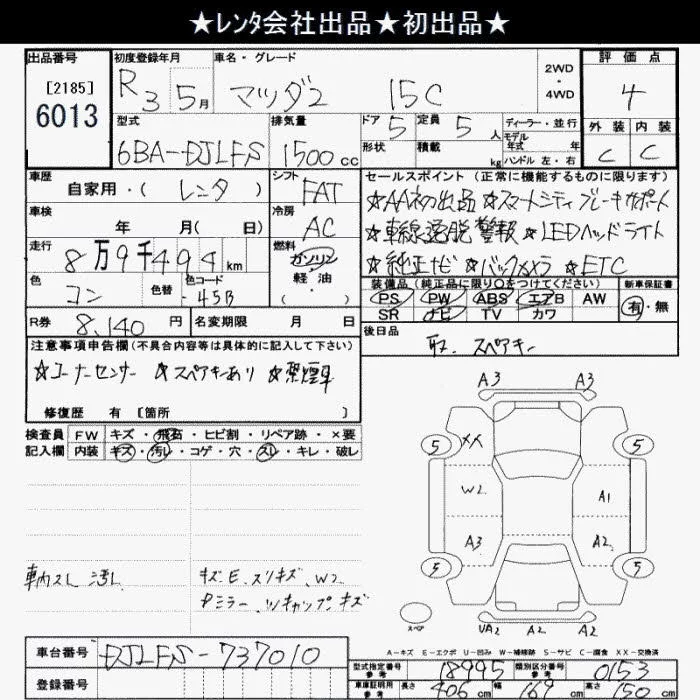 ★ﾚﾝﾀ会社出品★初出品★
出品番号
[2185]
6013
初度登録年月
R3 5月
車名・グレード
マツダ2 15C
2WD
・
4WD
評価点
4
型式
6BA-DJLFS
排気量
1500cc
ドア 5
定員 5人
形状
積載 kg
ディーラー・並行
モデル
年式 年
ハンドル 左・右
外装 内装
C C
車歴
自家用・( レンタ )
シフト
FAT
車検
年 月( 日)
冷房
AC
走行
8万9千494km
燃料
ガソリン
軽・油
・( )
色
コン
色替
色コード
45B
R券 8,140円
名変期限 月 日
セールスポイント (正常に機能するものに限ります)
★AA初出品 ★スマートシティブレーキサポート
★車線逸脱警報 ★LEDヘッドライト
★純正ナビ ★バックカメラ ★ETC
装備品 (純正品に限り○をつけてください)
新車保証書
PS PW ABS エアB AW
SR ナビ TV カワ
有・無
後日品
取、スペアキー
注意事項申告欄 (不具合内容等は具体的に記入して下さい)
★コーナーセンサー ★スペアキーあり ★禁煙車
修復歴 有 [箇所 ]
検査員 FW キズ・飛石・ヒビ割・リペア跡・×要
記入欄 内装 キズ・汚レ・コゲ・穴・スレ・キレ・破レ
車内スレ 汚レ
キズ.E.スリキズ、W2
Pミラー、Wキャップキズ
A3 A3
5 XX 5
W2 A1
A3 A2
5 5
スペア
UA2 A2 A2
A-キズ E-エクボ U-凹み W-補修跡 S-サビ C-腐食 XX-交換済
車台番号 DJLFS-737010
登録番号
型式指定番号
参考
18995
類別区分番号
参考
0153
車庫証明用
参考
長さ 406cm 幅 169cm 高さ 150cm